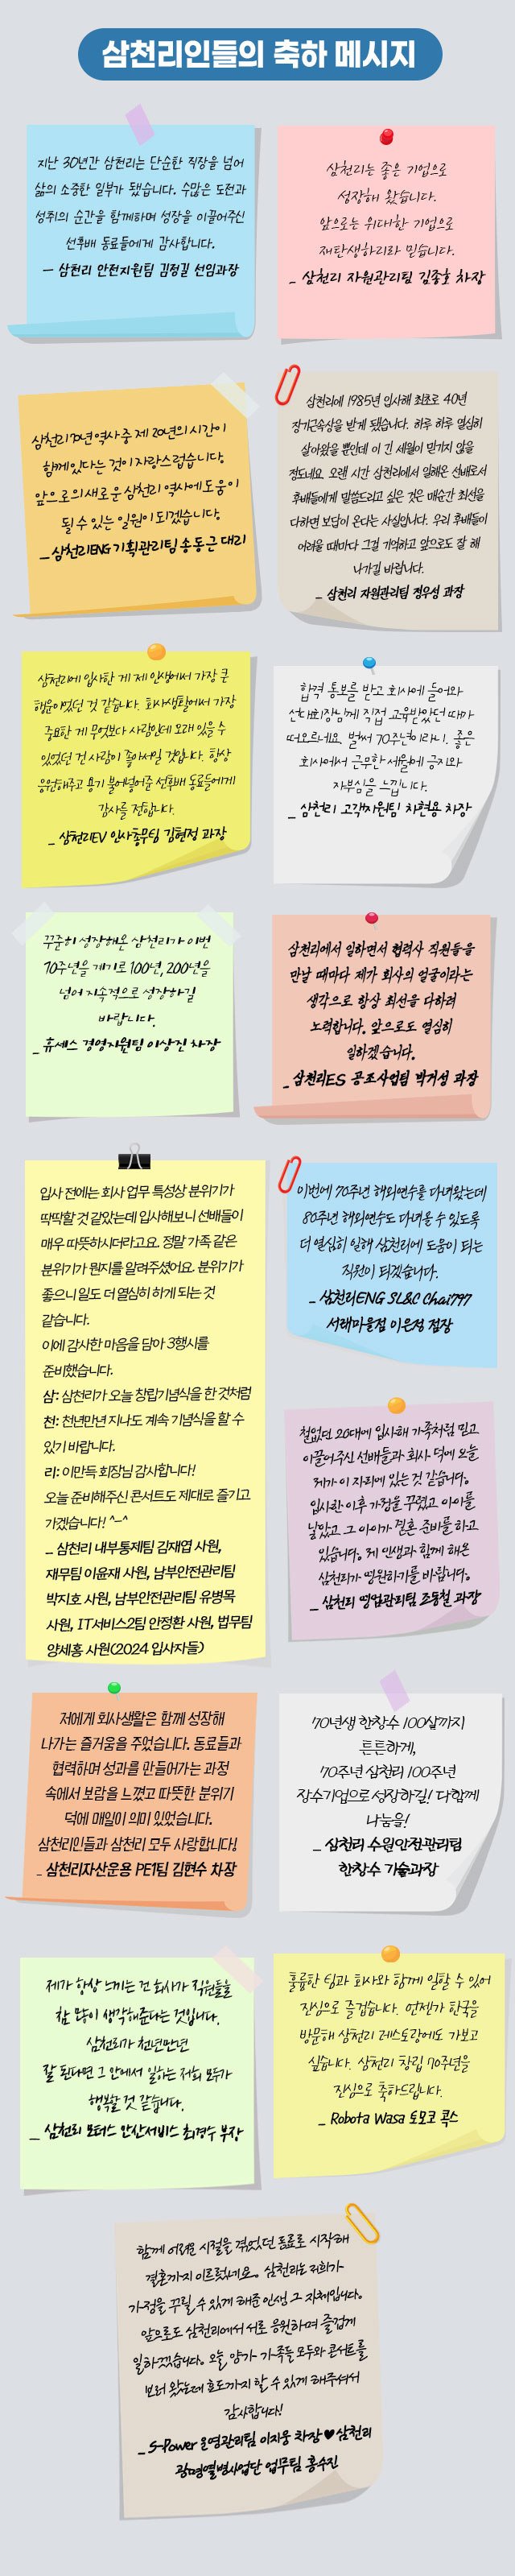 삼천리인들의 축하 메시지
지난 30년간 삼천리는 단순한 직장을 넘어
삶의 소중한 일부가 됐습니다. 수많은 도전과
성취의 순간을 함께하며 성장을 이끌어주신
선후배 동료들에게 감사합니다.
– 삼천리 안전지원팀 김정길 선임과장
삼천리는 좋은 기업으로
성장해 왔습니다.
앞으로는 위대한 기업으로
재탄생하리라 믿습니다.
_ 삼천리 자원관리팀 김종호 차장
삼천리 70년 역사 중 제 20년의 시간이
함께 있다는 것이 자랑스럽습니다.
앞으로의 새로운 삼천리 역사에 도움이
될 수 있는 일원이 되겠습니다.
_ 삼천리ENG 기획관리팀 송동근 대리
삼천리에 1985년 입사해 최초로 40년
장기근속상을 받게 됐습니다. 하루 하루 열심히
살아왔을 뿐인데 이 긴 세월이 믿기지 않을
정도네요. 오랜 시간 삼천리에서 일해온 선배로서
후배들에게 말씀드리고 싶은 것은 매순간 최선을
다하면 보답이 온다는 사실입니다. 우리 후배들이
어려울 때마다 그걸 기억하고 앞으로도 잘 해
나가길 바랍니다.
_ 삼천리 자원관리팀 정우성 과장
삼천리에 입사한 게 제 인생에서 가장 큰
행운이었던 것 같습니다. 회사생활에서 가장
중요한 게 무엇보다 사람인데 오래 있을 수
있었던 건 사람이 좋아서일 것입니다. 항상
응원해주고 용기 불어넣어준 선후배 동료들에게
감사를 전합니다.
_ 삼천리EV 인사총무팀 김현정 과장
합격 통보를 받고 회사에 들어와
선대회장님께 직접 교육받았던 때가
떠오르네요. 벌써 70주년이라니. 좋은
회사에서 근무한 세월에 긍지와
자부심을 느낍니다.
_ 삼천리 고객지원팀 차현용 차장
꾸준히 성장해온 삼천리가 이번
70주년을 계기로 100년, 200년을
넘어 지속적으로 성장하길
바랍니다.
_ 휴세스 경영지원팀 이상진 차장
삼천리에서 일하면서 협력사 직원들을
만날 때마다 제가 회사의 얼굴이라는
생각으로 항상 최선을 다하려
노력합니다. 앞으로도 열심히
일하겠습니다.
_ 삼천리ES 공조사업팀 박거성 과장
입사 전에는 회사 업무 특성상 분위기가
딱딱할 것 같았는데 입사해보니 선배들이
매우 따뜻하시더라고요. 정말 가족 같은
분위기가 뭔지를 알려주셨어요. 분위기가
좋으니 일도 더 열심히 하게 되는 것
같습니다.
이에 감사한 마음을 담아 3행시를
준비했습니다.
삼: 삼천리가 오늘 창립기념식을 한 것처럼
천: 천년만년 지나도 계속 기념식을 할 수
있기 바랍니다.
리: 이만득 회장님 감사합니다!
오늘 준비해주신 콘서트도 제대로 즐기고
가겠습니다! ^-^
_ 삼천리 내부통제팀 김재엽 사원,
재무팀 이윤재 사원, 남부안전관리팀
박지호 사원, 남부안전관리팀 유병목
사원, IT서비스2팀 안정환 사원, 법무팀
양세홍 사원(2024 입사자들)
이번에 70주년 해외연수를 다녀왔는데
80주년 해외연수도 다녀올 수 있도록
더 열심히 일해 삼천리에 도움이 되는
직원이 되겠습니다.
_ 삼천리ENG SL&C Chai797
서래마을점 이은정 점장
철없던 20대에 입사해 가족처럼 믿고
이끌어주신 선배들과 회사 덕에 오늘
제가 이 자리에 있는 것 같습니다.
입사한 이후 가정을 꾸렸고 아이를
낳았고 그 아이가 결혼 준비를 하고
있습니다. 제 인생과 함께 해온
삼천리가 영원하기를 바랍니다.
_ 삼천리 영업관리팀 조동철 과장
저에게 회사생활은 함께 성장해
나가는 즐거움을 주었습니다. 동료들과
협력하며 성과를 만들어가는 과정
속에서 보람을 느꼈고 따뜻한 분위기
덕에 매일이 의미 있었습니다.
삼천리인들과 삼천리 모두 사랑합니다!
_ 삼천리자산운용 PE1팀 김현수 차장
70년생 한창수 100살까지
튼튼하게,
70주년 삼천리 100주년
장수기업으로 성장하길! 다함께
나눔을!
_ 삼천리 수원안전관리팀
한창수 기술과장
제가 항상 느끼는 건 회사가 직원들을
참 많이 생각해준다는 것입니다.
삼천리가 천년만년
잘 된다면 그 안에서 일하는 저희 모두가
행복할 것 같습니다.
_ 삼천리 모터스 안산서비스 최경수 부장
훌륭한 팀과 회사와 함께 일할 수 있어
진심으로 즐겁습니다. 언젠가 한국을
방문해 삼천리 레스토랑에도 가보고
싶습니다. 삼천리 창립 70주년을
진심으로 축하드립니다.
_ Robota Wasa 도모코 콕스
함께 어려운 시절을 겪었던 동료로 시작해
결혼까지 이르렀네요. 삼천리는 저희가
가정을 꾸릴 수 있게 해준 인생 그 자체입니다.
앞으로도 삼천리에서 서로 응원하며 즐겁게
일하겠습니다. 오늘 양가 가족들 모두와 콘서트를
보러 왔는데 효도까지 할 수 있게 해주셔서
감사합니다!
_ S-Power 운영관리팀 이지웅 차장♥삼천리
광명열병사업단 업무팀 홍수진